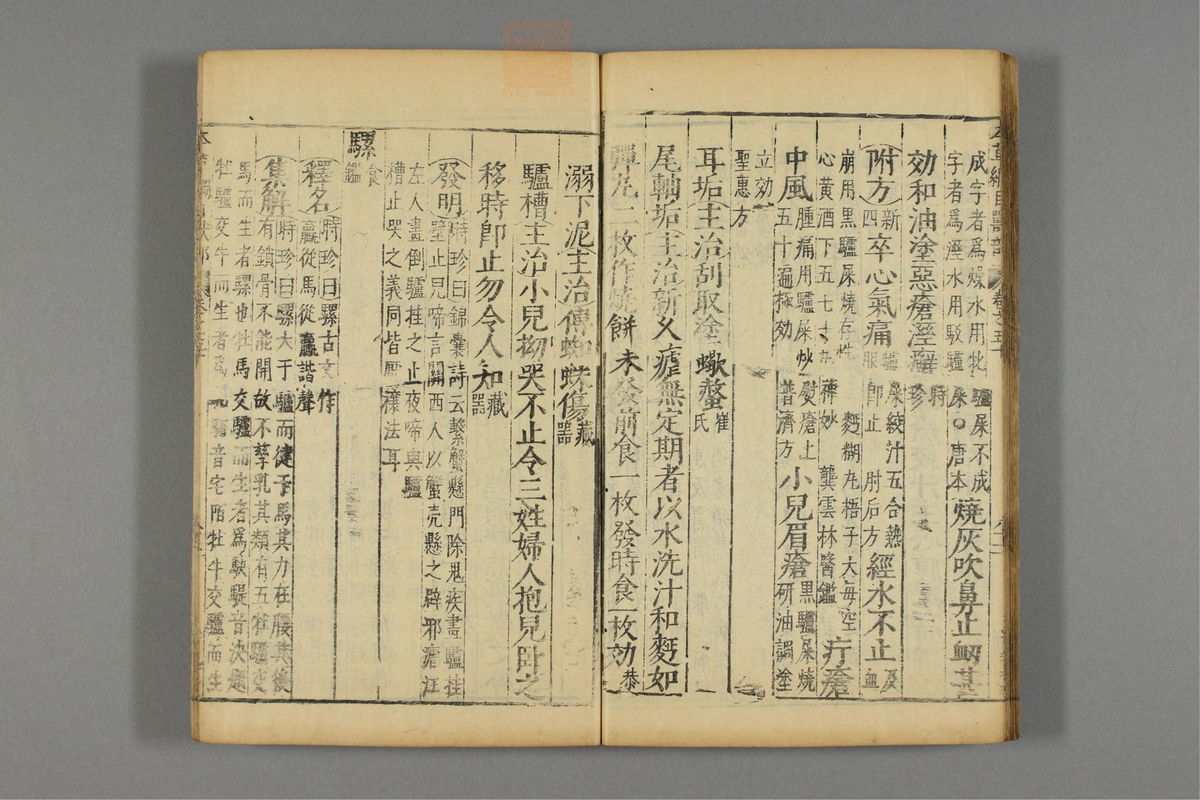 成字者為燥水用牝驢屎不成
字者為溼水用駁驢屎○唐本燒灰吹鼻止衂甚
効和油塗惡瘡溼癬時珍
附方新四卒心氣痛驢屎絞汁五合熱服即止肘后方經水不止及血
崩用黑驢屎燒存性麪糊丸梧子大每空
心黃酒下五七十丸蔣妙龔雲林醫鑑疔瘡
中風腫痛用驢屎炒熨瘡上五十遍極効普濟方小兒眉瘡黑驢屎燒研油調塗
立効
聖惠方
耳垢主治刮取塗蠍螫崔氏
尾軸垢主治新久瘧無定期者以水洗汁和麪如
彈丸二枚作燒餅未發前食一枚發時食一枚効恭
溺下泥主治傅蜘蛛傷藏器
驢槽主治小兒拗哭不止令三姓婦人抱兒臥之
移時卽止勿令人知藏器
發明時珍曰錦囊詩云繫蟹懸門除鬼疾畫驢挂
壁止兒啼言關西人以蟹壳懸之辟邪瘧江
左人畫倒驢挂之止夜啼與驢
槽止哭之義同皆厭禳法耳
騾食鑑
釋名時珍曰騾古文作
驘從馬從𣎆諧聲
集解時珍曰騾大于驢而健于馬其力在腰其後
有鎖骨不能開故不孳乳其類有五牡驢交
馬而生者騾也牡馬交驢而生者為駃騠音決題
牡驢交牛而生者為䮫音宅陌牡牛交驢而生